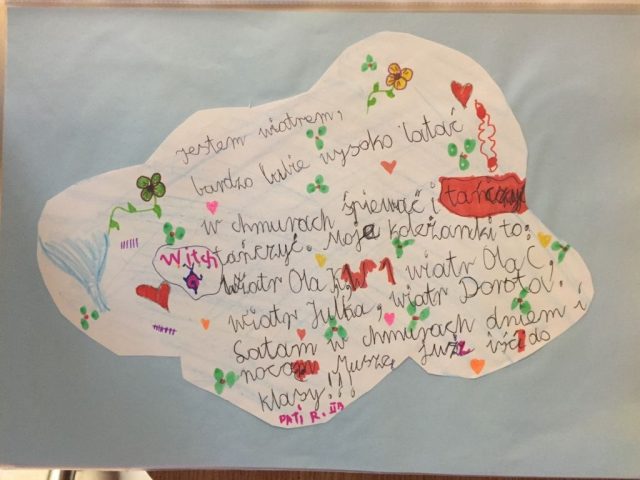 Jestem wiatrem,
bardzo lubie wysoko latać
w chmurach śpiewać i tańczyć
tańczyć. Moje koleżanki to:
Witch
Wiatr Ola K, wiatr Ola C,
wiatr Julka, wiatr Dorota.
Latam w chmurach dniem i
nocą. Muszę już iść do
klasy!!!
PATI R.